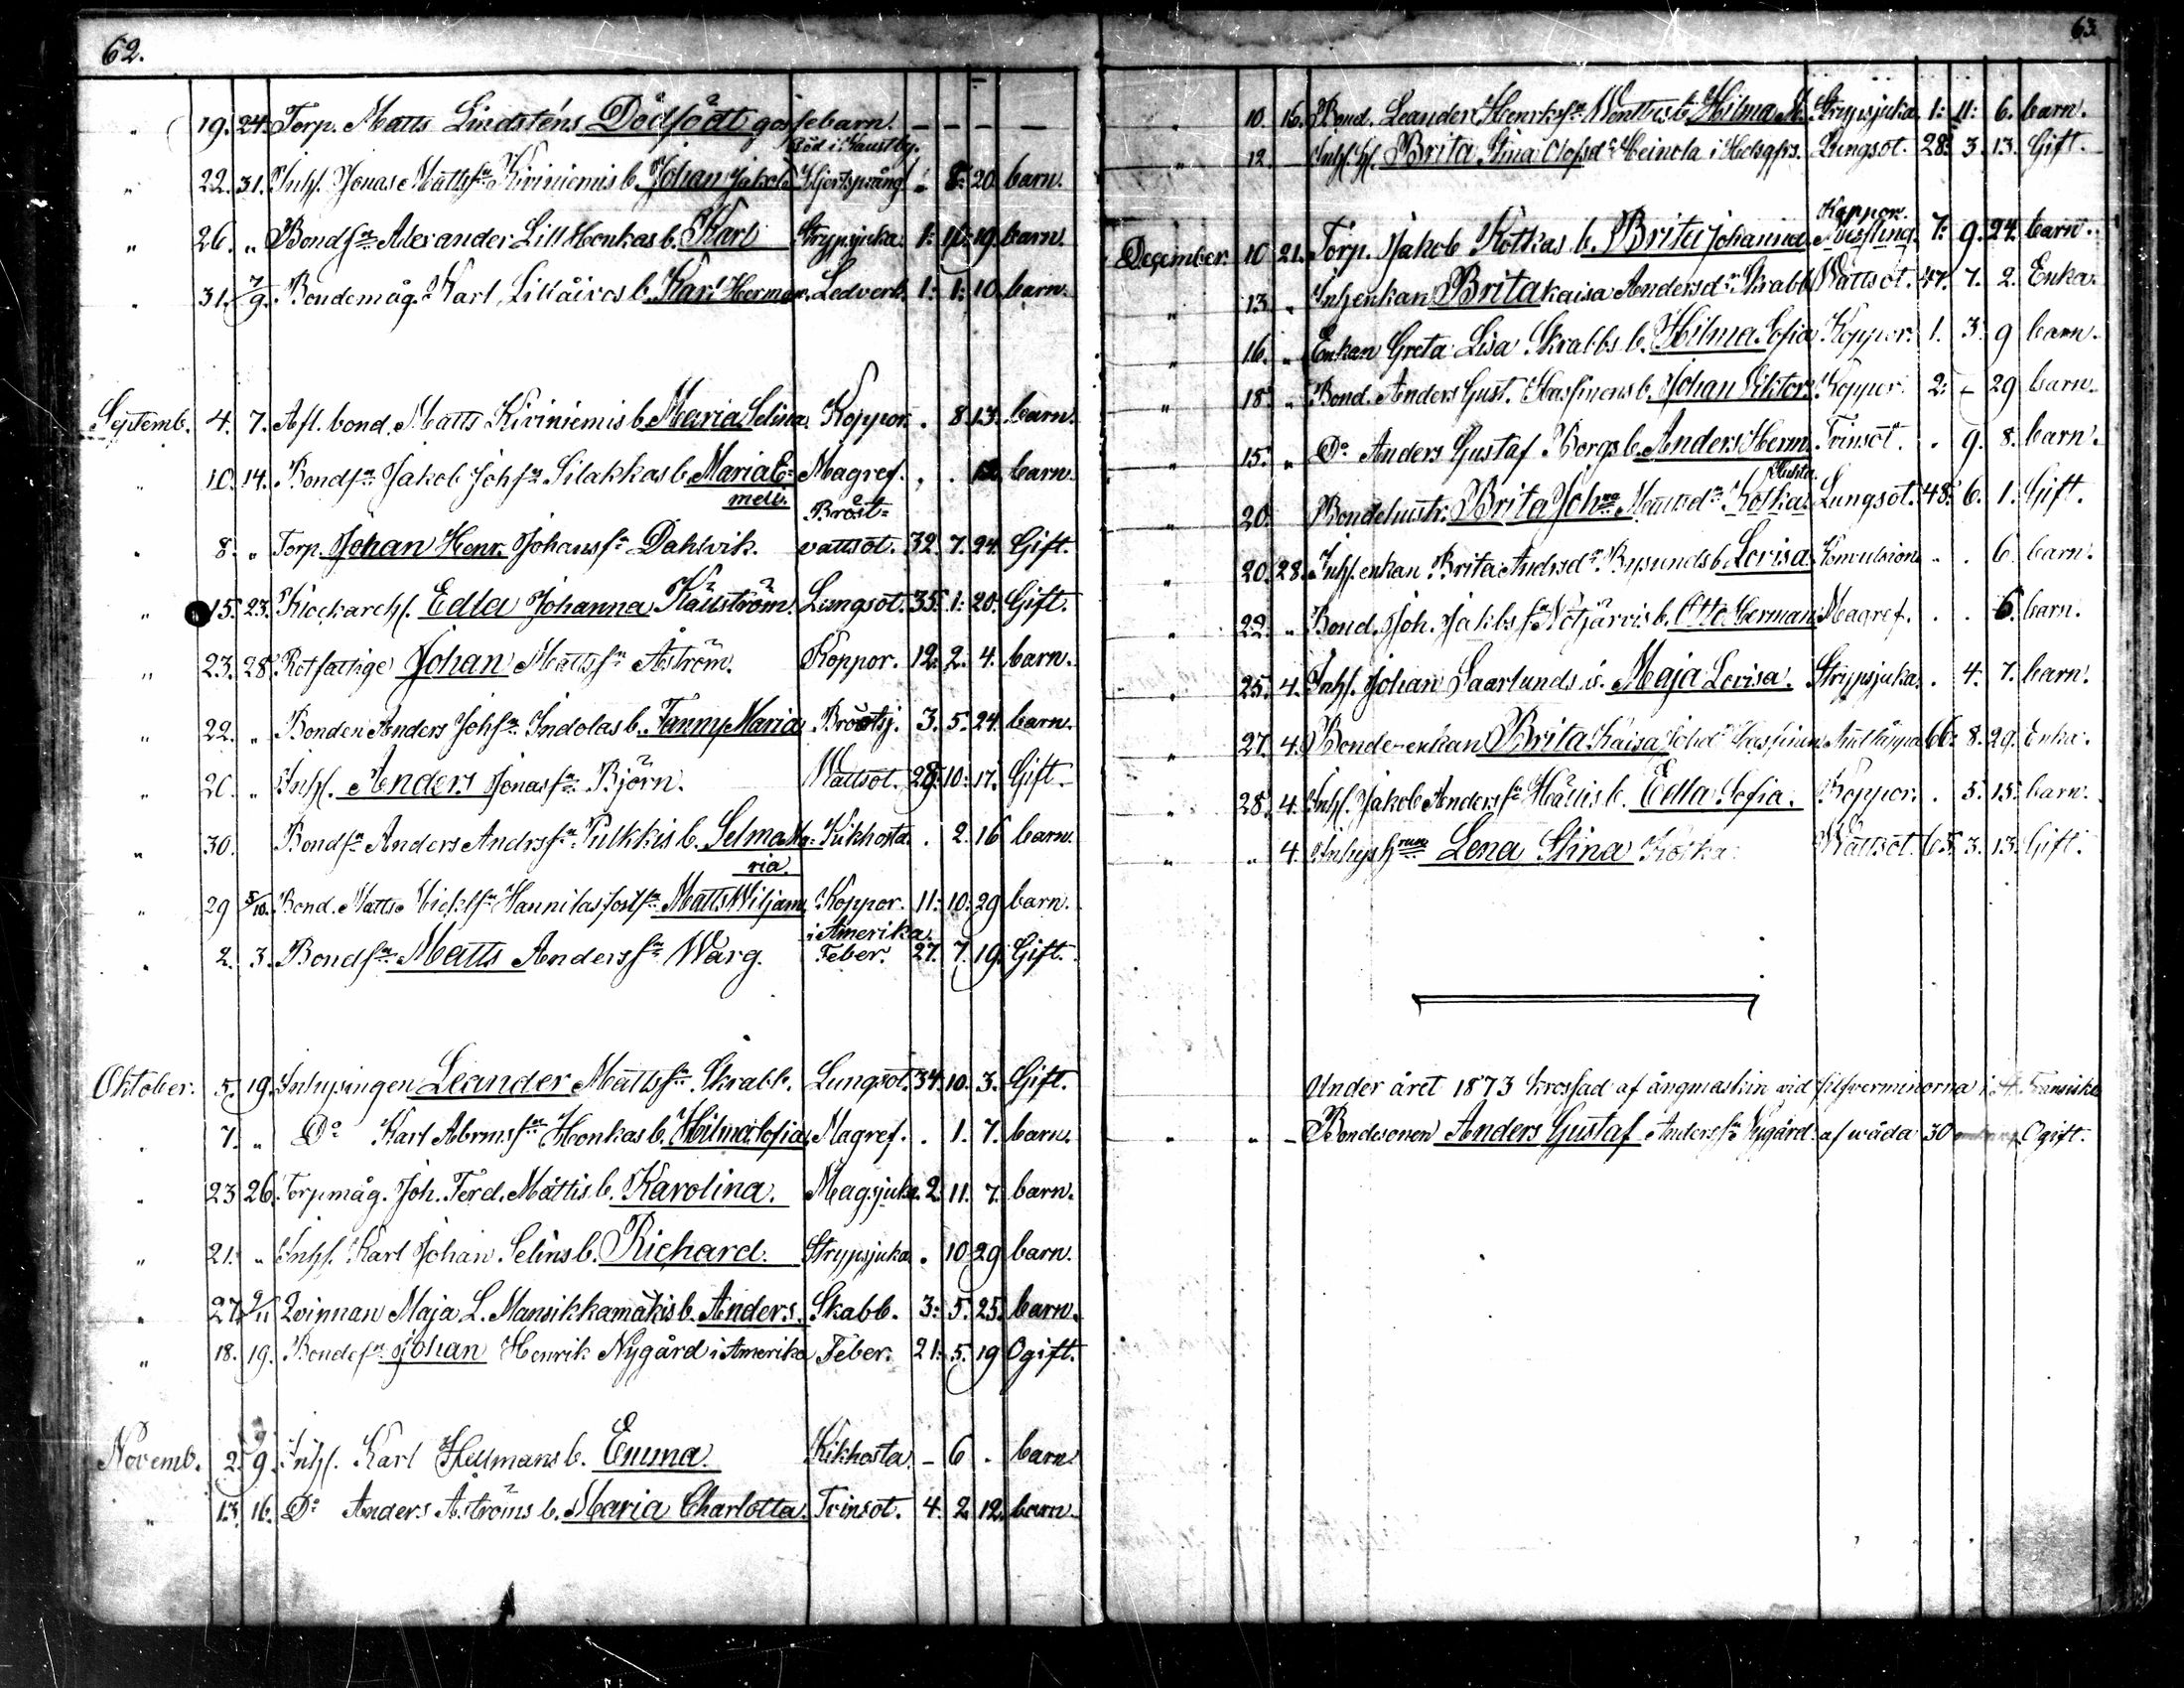 62.
" 19. 24. Torp. Matts Lindsténs Dödfödt gossebarn. — — — —
Död i Kaustby.
" 22. 31. Inhs. Jonas Mattsſn Kiviniemis b. Johan Jakob Hjertsprång " 8: 20. barn.
" 26. " Bondsn Alexander Lill Honkas b. Karl Strypsjuka. 1: 10: 19. barn.
" 31. 7/9. Bondemåg. Karl Lillåivos b. Karl Herman. Ledverk. 1: 1: 10. barn.
Septemb. 4. 7. Afl. bond. Matts Kiviniemis b. Maria Selina. Koppor. . 8. 13. barn.
" 10. 14. Bondsn Jakob Johsn Silakkas b. Maria E= Magref. . . 12. barn.
mell. Bröst=
" 8. " Torp. Johan Henr. Johanssn Dahlvik. vattsot. 32. 7. 24. Gift.
" 15. 23. Klockarehs. Edla Johanna Källström. Lungsot. 35. 1: 20. Gift.
" 23. 28. Rotfattige Johan Mattssn Åström. Koppor. 12. 2. 4. barn.
" 22. " Bonden Anders Johsn Indolas b. Fanny Maria Bröstsj. 3. 5. 24. barn.
" 26. " Inhs. Anders Jonassn Björn. Wattsot. 28. 10: 17. Gift.
" 30. Bondsn Anders Andrssn Pulkkis b. Selma Ma= Kikhosta . 2. 16 barn.
ria.
" 29 5/10. Bond. Matts Mickssn Hannilas fostsn Matts Wiljam, Koppor. 11: 10: 29 barn.
i Amerika.
" 2. 3. Bondsn Matts Anderssn Warg. Feber. 27. 7. 19. Gift.
Oktober. 5. 19. Inhysingen Leander Mattssn Skrabb. Lungsot. 34. 10. 3. Gift.
" 7. " Do Karl Abrmssn Honkas b. Hilma Sofia Magref. . 1. 7. barn.
" 23 26. Torpmåg. Joh. Ferd. Mattis b. Karolina. Magsjuka. 2. 11. 7. barn.
" 21. " Inhs. Karl Johan Selins b. Richard. Strypsjuka . 10 29 barn.
" 27. 2/11 Qvinnan Maja L. Mansikkamäkis b. Anders. Skabb. 3: 5. 25. barn.
" 18. 19. Bondesn Johan Henrik Nygård i Amerika Feber. 21. 5. 19 Ogift.
Novemb. 2. 9. Inhs. Karl Hellmans b. Emma. Kikhosta. – 6 . barn.
" 13. 16. Do Anders Åströms b. Maria Charlotta. Tvinsot. 4. 2. 12. barn.
63.
" 10. 16. Bond. Leander Henrikssn b. Hilma M. Strypsjuka 1: 11: 6. barn.
" 12. — Inhs. hs. Brita Stina Olofsdr Heinola i Helsgfrs. Lungsot. 28. 3. 13. Gift.
Koppor.
December. 10 21. Torp. Jakob Kotkas b. Brita Johanna. 7: 9. 24. barn.
" 13. " Inhenkan Brita Kaisa Andersdr Skrabb Wattsot. 47. 7. 2. Enka.
" 16. " Enkan Greta Lisa Skrabbs b. Hilma Sofia Koppor. 1. 3. 9 barn.
" 18. " Bond. Anders Gust. Hassinens b. Johan Viktor. Koppor. 2: – 29 barn.
" 15. " Do Anders Gustaf Borgs b. Anders Herm. Tvinsot. . 9. 8. barn.
" 20. Bondehustr. Brita Johna Mattsdr Kotka. Lungsot. 48. 6. 1. Gift.
" 20. 28. Inhs. enkan Brita Andrsdr b. Lovisa. Konvulsion . . 6. barn.
" 22. " Bond. Joh. Jakbssn Nötjärvis b. Otto Herman Magref. . . 6. barn.
" 25. 4. Inhs. Johan Saarlunds b. Maja Lovisa. Strypsjuka. . 4. 7. barn.
" 27. 4. Bonde-enkan Brita Kaisa Hassinen Andtäppa 66. 8. 29. Enka.
" 28. 4. Inhs. Jakob Anderssn Hällis b. Edla Sofia. Koppor. . 5. 15. barn.
" " 4. Inhyshrun Lena Stina Kotka. Wattsot. 65. 3. 13. Gift.
Under året 1873 krossad af ångmaskin vid silfverminorna i
" " – Bondesonen Anders Gustaf Anderssn Nygård af wåda 30 Ogift.